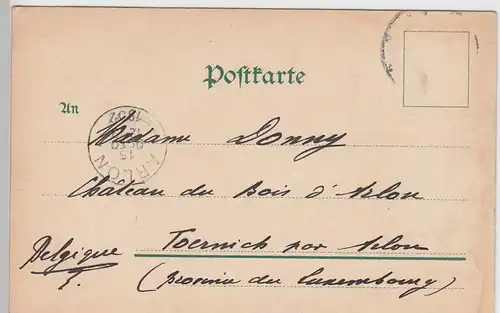 Postkarte
An
ARLON
15
Madame Donny
Château du Bois d'Arlon
Toernich par Arlon
Belgique
(Province du Luxembourg)